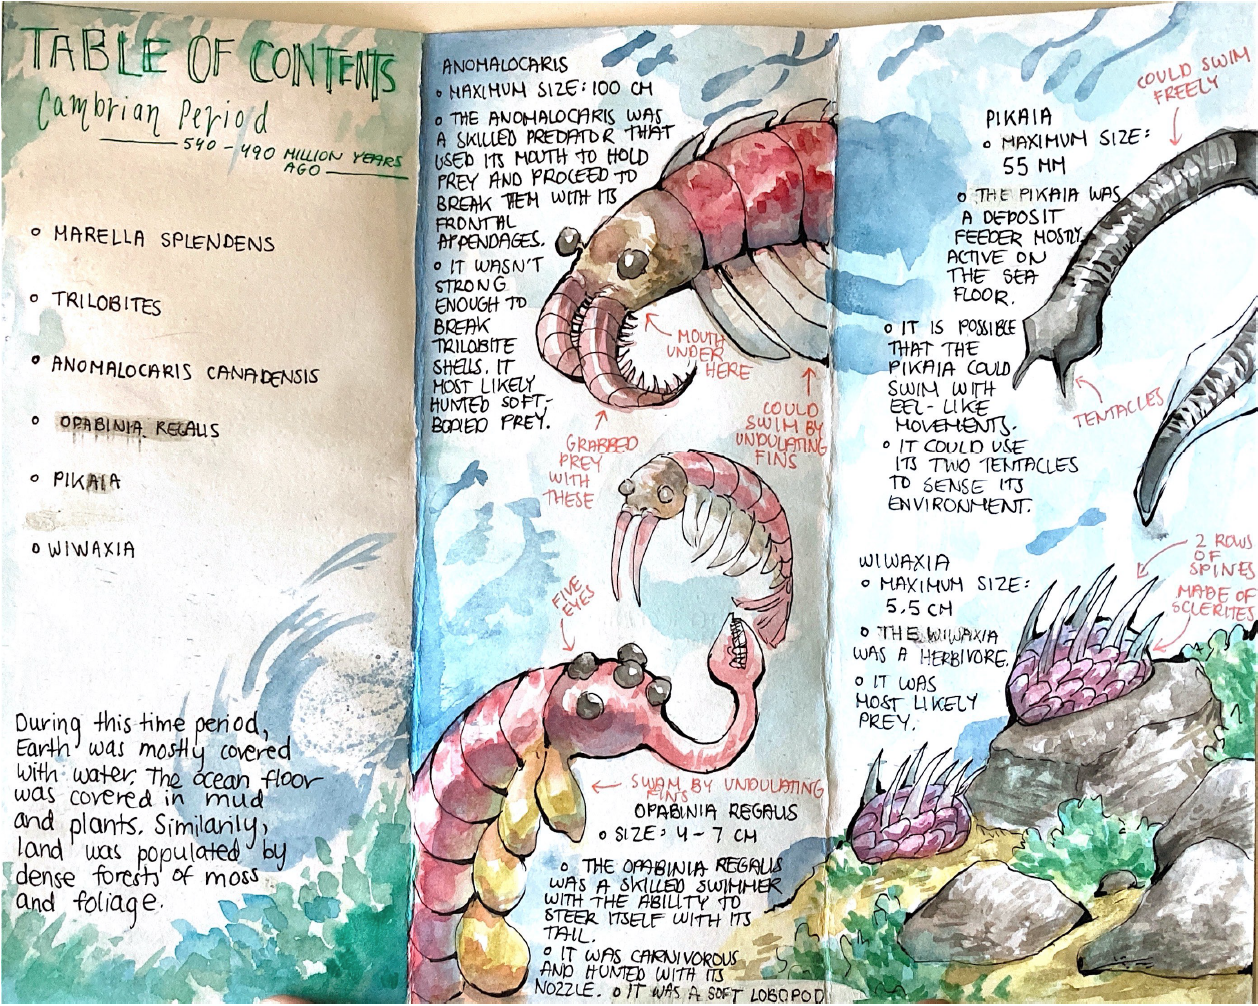 TABLE OF CONTENTS
Cambrian Period
540 - 490 MILLION YEARS
AGO
• MARELLA SPLENDENS
• TRILOBITES
• ANOMALOCARIS CANADENSIS
• OPABINIA REGALIS
• PIKAIA
• WIWAXIA
During this time period,
Earth was mostly covered
with water. The ocean floor
was covered in mud
and plants. Similarily,
land was populated by
dense forests of moss
and foliage.
ANOMALOCARIS
• MAXIMUM SIZE: 100 CM
• THE ANOMALOCARIS WAS
A SKILLED PREDATOR THAT
USED ITS MOUTH TO HOLD
PREY AND PROCEED TO
BREAK THEM WITH ITS
FRONTAL
APPENDAGES.
• IT WASN'T
STRONG
ENOUGH TO
BREAK
TRILOBITE
SHELLS. IT
MOST LIKELY
HUNTED SOFT-
BODIED PREY.
MOUTH
UNDER
HERE
GRABBED
PREY
WITH
THESE
COULD
SWIM BY
UNDULATING
FINS
FIVE
EYES
SWAM BY UNDULATING
FINS
OPABINIA REGALIS
• SIZE: 4-7 CM
• THE OPABINIA REGALIS
WAS A SKILLED SWIMMER
WITH THE ABILITY TO
STEER ITSELF WITH ITS
TAIL.
• IT WAS CARNIVOROUS
AND HUNTED WITH ITS
NOZZLE. • IT WAS A SOFT LOBOPOD
COULD SWIM
FREELY
PIKAIA
• MAXIMUM SIZE:
55 MM
• THE PIKAIA WAS
A DEPOSIT
FEEDER MOSTLY
ACTIVE ON
THE SEA
FLOOR.
• IT IS POSSIBLE
THAT THE
PIKAIA COULD
SWIM WITH
EEL-LIKE
MOVEMENTS.
• IT COULD USE
ITS TWO TENTACLES
TO SENSE ITS
ENVIRONMENT.
TENTACLES
WIWAXIA
• MAXIMUM SIZE:
5.5 CM
• THE WIWAXIA
WAS A HERBIVORE.
• IT WAS
MOST LIKELY
PREY.
2 ROWS
OF
SPINES
MADE OF
SCLERITES